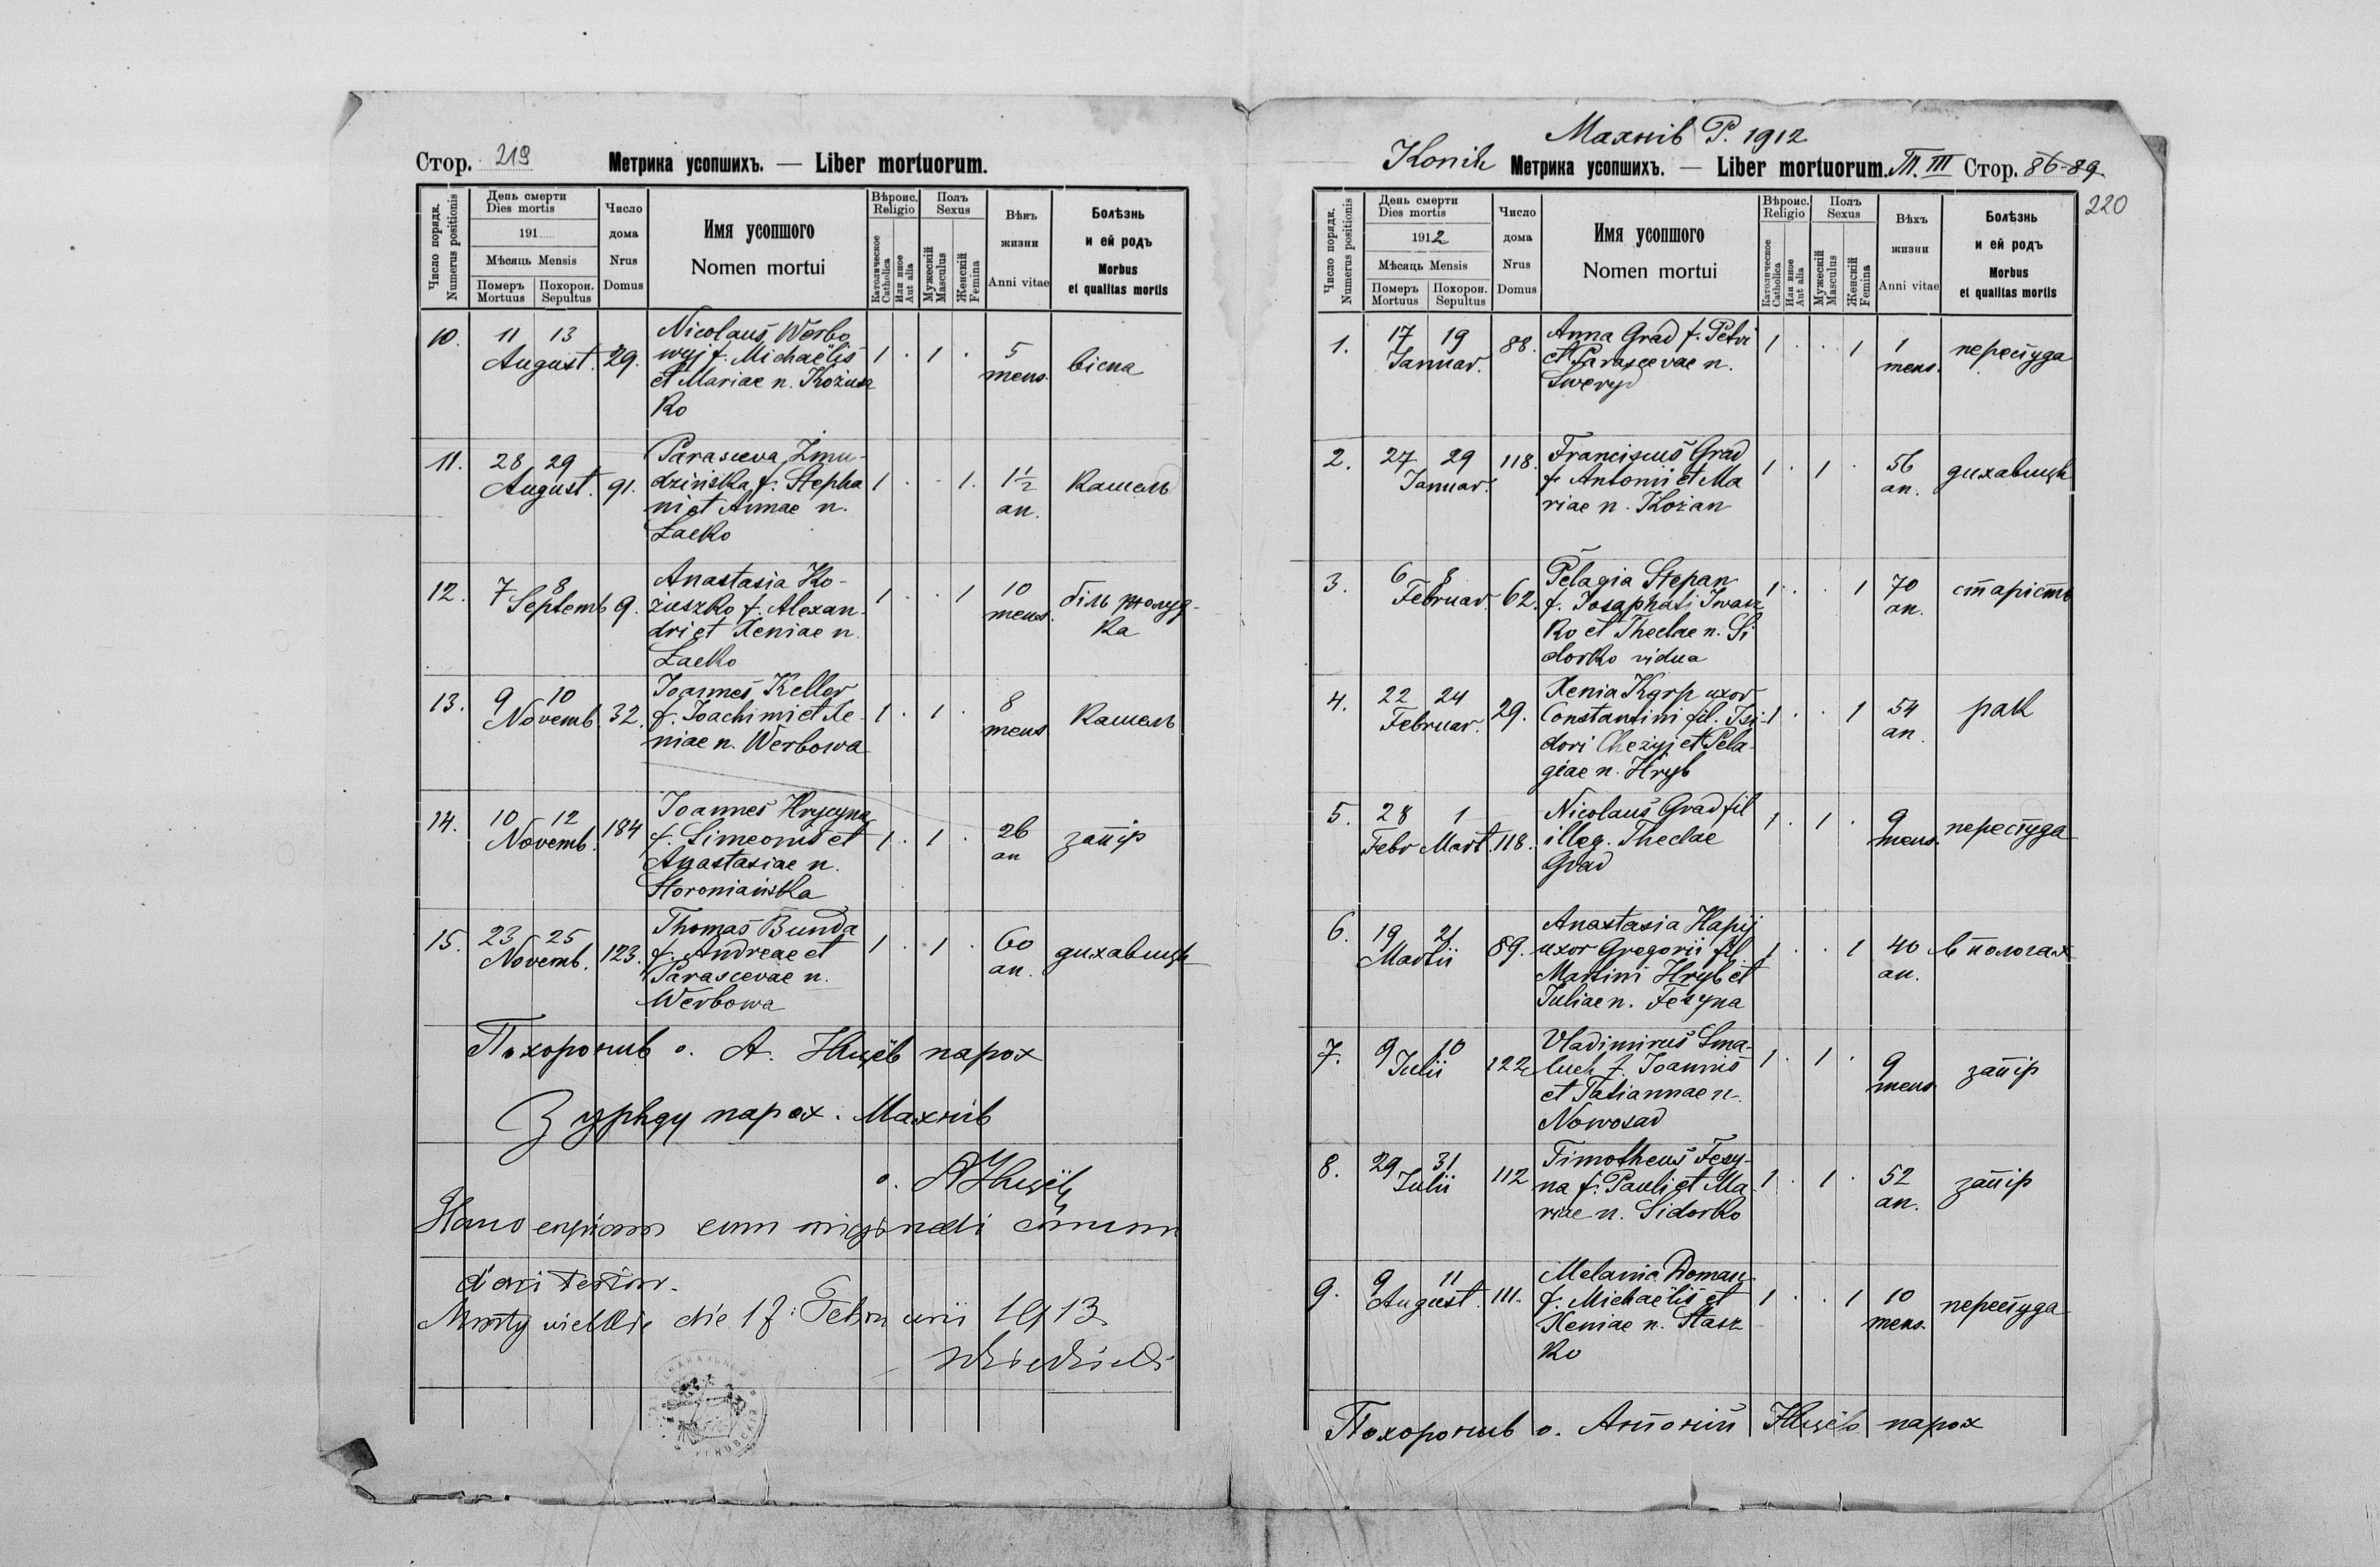 Стор. 219 Метрика усопшихъ. — Liber mortuorum.
Число порядк. Numerus positionis
День смерти Dies mortis
191
Мѣсяць Mensis
Померъ Mortuus
Похорон. Sepultus
Число дома Nrus Domus
Имя усопшого
Nomen mortui
Вѣроис. Religio
Католическое Catholica
Или иное Aut alia
Полъ Sexus
Мужескій Masculus
Женскій Femina
Вѣкъ жизни Anni vitae
Болѣзнь и ей родъ
Morbus et qualitas mortis
10. 11 13 August. 29. Nicolaus Werbo
wyj f. Michaëlis 1 . 1 . 5 mens. віспа
et Mariae n. Kożusz
ko
11. 28 29 August. 91. Parasceva Żmu-
dzińska f. Stepha 1 . . 1. 1½ an. кашель
ni et Annae n.
Łacko
12. 7 8 Septemb 9. Anastasia Ko-
żuszko f. Alexan- 1 . . 1 10 mens. біль жолуд-
dri et Xeniae n. ка
Łacko
13. 9 10 Novemb. 32. Joannes Keller
f. Joachimi et Xe- 1 . 1 . 8 mens кашель
niae n. Werbowa
14. 10 12 Novemb. 184 Joannes Hrycyna
f. Simeonis et 1 . 1 . 26 an запір
Anastasiae n.
Horoniańska
15. 23 25 Novemb. 123. Thomas Bunda
f. Andreae et 1 . 1 . 60 an. дихавиця
Parascevae n.
Werbowa
Похоронив о. А. парох
З уряду парох. Махнів
о.
cum originali
die 17. Februarii 1913
Махнів Р. 1912
Konik Метрика усопшихъ. — Liber mortuorum. Т. III Стор. 86-89
220
Число порядк. Numerus positionis
День смерти Dies mortis
1912
Мѣсяць Mensis
Померъ Mortuus
Похорон. Sepultus
Число дома Nrus Domus
Имя усопшого
Nomen mortui
Вѣроис. Religio
Католическое Catholica
Или иное Aut alia
Полъ Sexus
Мужескій Masculus
Женскій Femina
Вѣхъ жизни Anni vitae
Болѣзнь и ей родъ
Morbus et qualitas mortis
1. 17 19 Januar. 88. Anna Grad f. Petri
et Parascevae n. 1 . . 1 1 mens. перестуда
Sweryd
2. 27 29 Januar. 118. Franciscus Grad
f. Antonii et Ma 1 . 1 . 56 an. дихавиця
riae n. Kożan
3. 6 8 Februar. 62. Pelagia Stepan
f. Josaphati Iwasz 1 . . 1 70 an. старість
ko et Theclae n. Si
dorko vidua
4. 22 24 Februar. 29. Xenia Karp uxor
Constantini fil. Isi- 1 . . 1 54 an. рак
dori Chezyj et Pela-
giae n. Hryb
5. 28 1 Febr Mart. 118. Nicolaus Grad fil
illeg. Theclae 1 . 1 . 9 mens. перестуда
Grad
6. 19 21 Martii 89. Anastasia Hapij
uxor Gregorii fil. 1 . . 1 40 an. в пологах
Martini Hryb et
Juliae n. Fesyna
7. 9 10 Julii 122 Vladimirus Sma-
luch f. Joannis 1 . 1 . 9 mens запір
et Tatiannae n.
Nowosad
8. 29 31 Julii 112 Timotheus Fesy-
na f. Pauli et Ma- 1 . 1 . 52 an. запір
riae n. Sidorko
9. 9 11 August. 111. Melania Roman
f. Michaëlis et 1 . . 1 10 mens. перестуда
Xeniae n. Stasz
ko
Похоронив о. Антоній парох